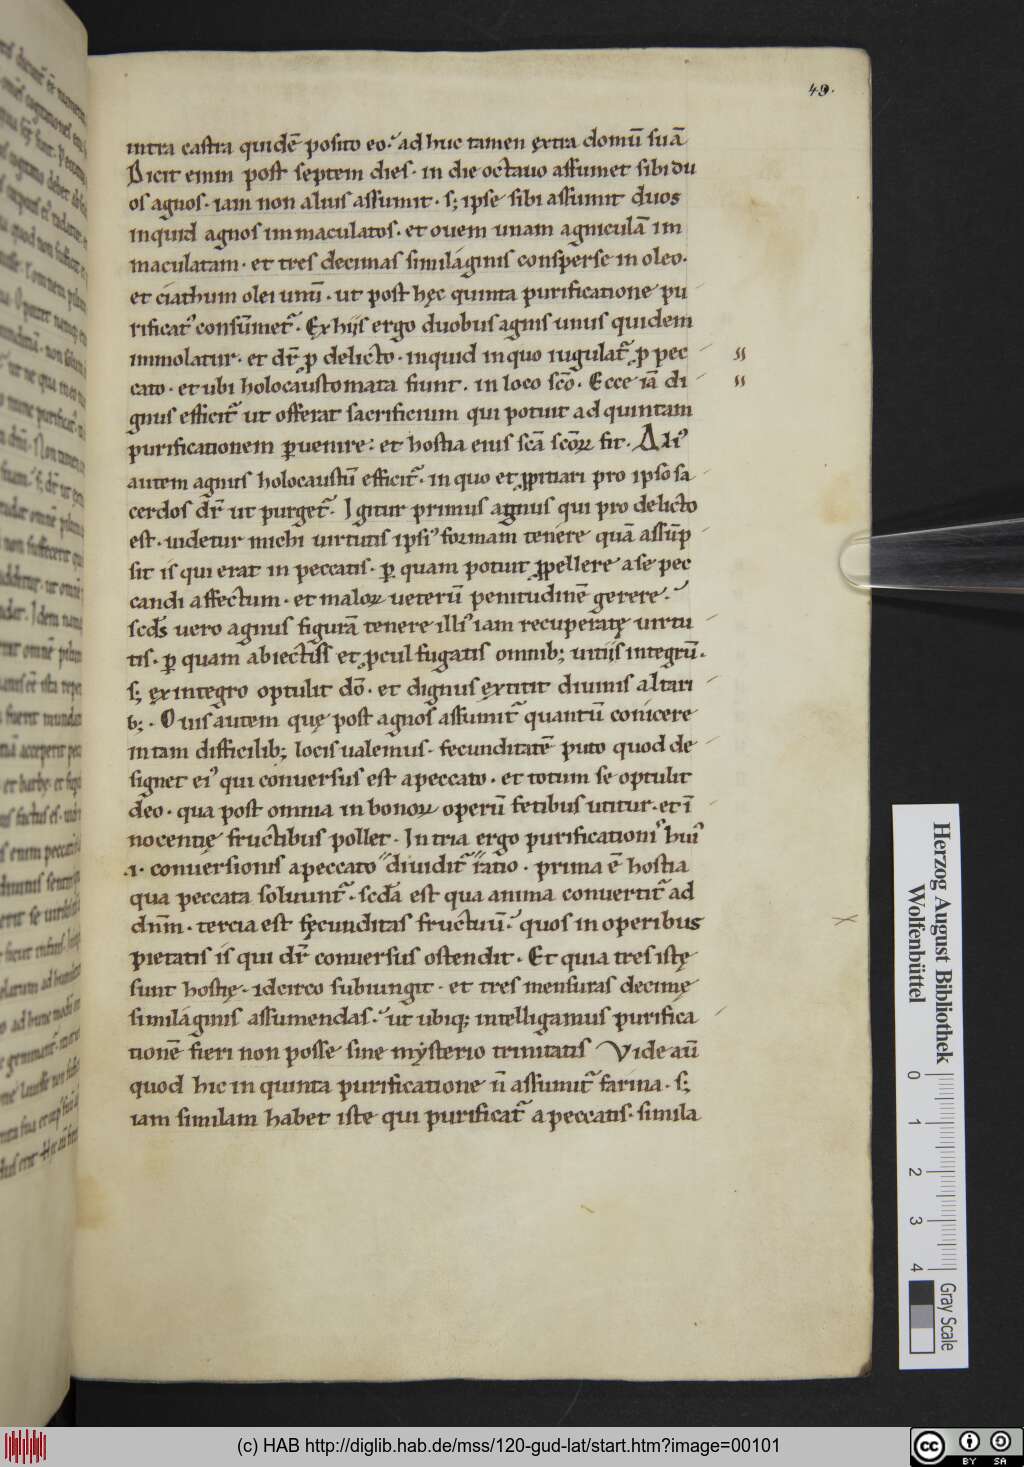 49.
intra castra quidē posito eo. ad huc tamen extra domū suā
Dicit enim post septem dies. in die octauo assumet sibi du
os agnos. iam non alius assumit. s; ipse sibi assumit duos
inquid agnos immaculatos. et ouem unam agniculā im
maculatam. et tres decimas similáginis consperse in oleo.
et ciathum olei unū. ut post hęc quinta purificatione pu
rificatꝰ consūmet᷑. Ex hijs ergo duobus agnis unus quidem
immolatur. et dr̄ ꝑ delicto. inquid in quo iugulat᷑ ꝑ pec
cato. et ubi holocaustomata fiunt. in loco sc̄o. Ecce iā di
gnus efficit᷑ ut offerat sacrificium qui potuit ad quintam
purificationem ꝑuenire: et hostia eius scā scōꝝ fit. Aliꝰ
autem agnus holocaustū efficit᷑. in quo et ꝓpitiari pro ipso sa
cerdos dr̄ ut purget᷑. Igitur primus agnus qui pro delicto
est. uidetur michi uirtutis ipsiꝰ formam tenére quā assūp
sit is qui erat in peccatis. ꝑ quam potuit ꝓpellere a se pec
candi affectum. et maloꝝ ueterū penitudinē gerere.
scd̄s uero agnus figurā tenere illiꝰ iam recuperatę uirtu
tis. ꝑ quam abiectis et ꝓcul fugatis omnib; uitijs integrū.
s; ex integro optulit dō. et dignus extitit diuinis altari
b;. Ouis autem quę post agnos assumit᷑ quantū conicere
in tam difficilib; locis ualemus. fecunditatē puto quod de
signet eiꝰ qui conuersus est a peccato. et totum se optulit
deo. qua post omnia in bonoꝝ operū fetibus utitur. et ī
nocentię fructibus pollet. In tria ergo purificationis huiꝰ
.i. conuérsionis a peccato diuidit᷑ ratio. prima ē hostia
qua peccata soluunt᷑. scd̄a est qua anima conuertit᷑ ad
dn̄m. tercia est fęcunditas fructuū. quos in operibus
pietatis is qui dr̄ conuersus ostendit. Et quia tres istę
sunt hostię. idcirco subiungit. et tres mensuras decimę
similáginis assumendas. ut ubiq; intelligamus purifica
tionē fieri non posse sine mysterio trinitatis Vide aū
quod hic in quinta purificatione n̄ assumit᷑ farina. s;
iam similam habet iste qui purificat᷑ a peccatis. simila
Herzog August Bibliothek
Wolfenbüttel
0 1 2 3 4
Gray Scale
(c) HAB http://diglib.hab.de/mss/120-gud-lat/start.htm?image=00101
cc BY SA